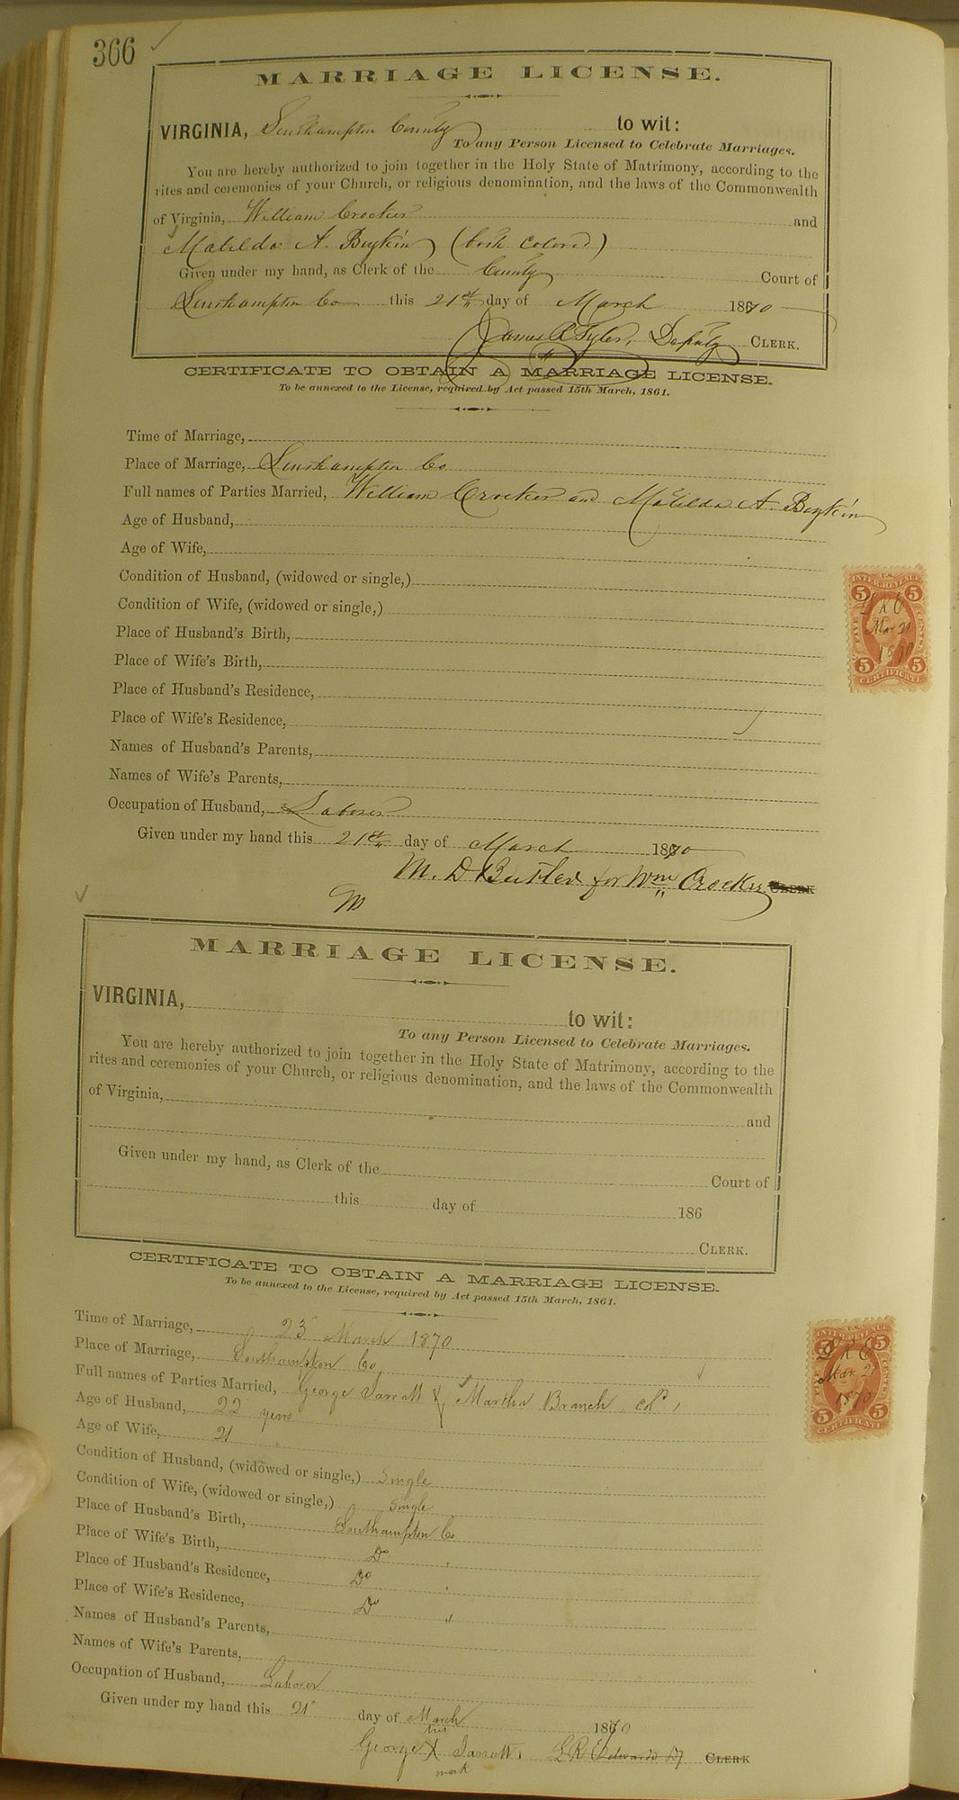 366
MARRIAGE LICENSE.
VIRGINIA, Southampton County to wit:
To any Person Licensed to Celebrate Marriages.
You are hereby authorized to join together in the Holy State of Matrimony, according to the
rites and ceremonies of your Church, or religious denomination, and the laws of the Commonwealth
of Virginia, William Crocker and
Matilda A. Boykin (both colored)
Given under my hand, as Clerk of the County Court of
Southampton Co this 21st day of March 1870
James R Tyler, Deputy CLERK.
CERTIFICATE TO OBTAIN A MARRIAGE LICENSE.
To be annexed to the License, required by Act passed 15th March, 1861.
Time of Marriage,
Place of Marriage, Southampton Co
Full names of Parties Married, William Crocker and Matilda A. Boykin
Age of Husband,
Age of Wife,
Condition of Husband, (widowed or single,)
Condition of Wife, (widowed or single,)
Place of Husband's Birth,
Place of Wife's Birth,
Place of Husband's Residence,
Place of Wife's Residence,
Names of Husband's Parents,
Names of Wife's Parents,
Occupation of Husband, Laborer
Given under my hand this 21st day of March 1870
M. D. Butler for Wm Crocker CLERK
INTER. REVENUE
5 5
FIVE CENTS
Mar 21
1870
5 5
CERTIFICATE
MARRIAGE LICENSE.
VIRGINIA, to wit:
To any Person Licensed to Celebrate Marriages.
You are hereby authorized to join together in the Holy State of Matrimony, according to the
rites and ceremonies of your Church, or religious denomination, and the laws of the Commonwealth
of Virginia,
and
Given under my hand, as Clerk of the Court of
this day of 186
CLERK.
CERTIFICATE TO OBTAIN A MARRIAGE LICENSE.
To be annexed to the License, required by Act passed 15th March, 1861.
Time of Marriage, 23 March 1870
Place of Marriage, Southampton Co
Full names of Parties Married, George Jarratt & Martha Branch, cold,
Age of Husband, 22 years
Age of Wife, 21
Condition of Husband, (widowed or single,) Single
Condition of Wife, (widowed or single,) Single
Place of Husband's Birth, Southampton Co
Place of Wife's Birth, Do
Place of Husband's Residence, Do
Place of Wife's Residence, Do "
Names of Husband's Parents,
Names of Wife's Parents,
Occupation of Husband, Laborer
Given under my hand this 21 day of March 1870
his
George X Jarratt L R Edwards CLERK
mark
5 5
Mar 21
1870
5 5
CERTIFICATE